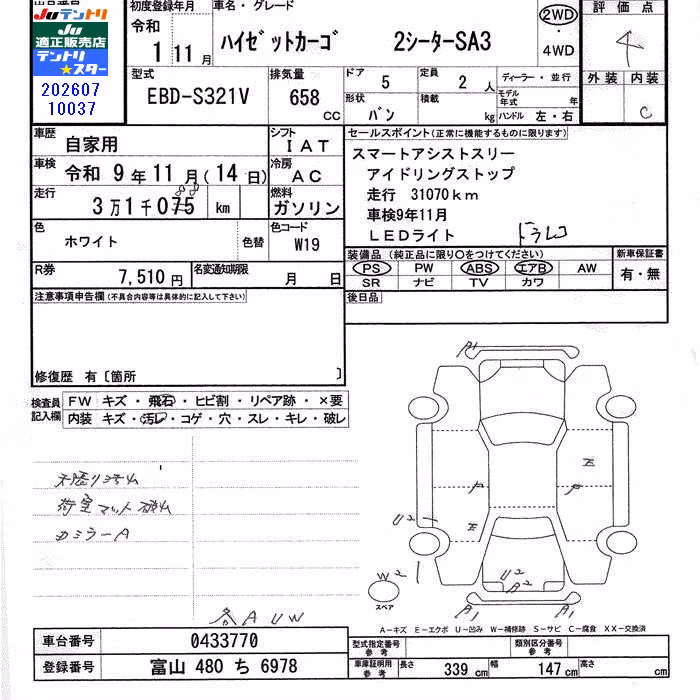 Juテントリ
JU
適正販売店
テントリ
★スター
202607
10037
初度登録年月
令和
1年11月
車名・グレード
ハイゼットカーゴ 2シーターSA3
2WD
・
4WD
評価点
4
外装 内装
C
型式
EBD-S321V
排気量
658
cc
ドア 5
形状 バン
定員 2人
積載 kg
ディーラー・並行
モデル年式 年
ハンドル 左・右
車歴 自家用
シフト IAT
車検 令和 9年11月(14日)
冷房 AC
走行 3万1千075 km
88
燃料 ガソリン
色 ホワイト
色替
色コード W19
R券 7,510円
名変通知期限 月 日
セールスポイント(正常に機能するものに限ります)
スマートアシストスリー
アイドリングストップ
走行 31070km
車検9年11月
LEDライト
ドラレコ
装備品(純正品に限り○をつけてください)
PS PW ABS エアB AW
SR ナビ TV カワ
新車保証書
有・無
注意事項申告欄(不具合内容等は具体的に記入して下さい)
後日品
修復歴 有〔箇所 〕
検査員記入欄
FW キズ・飛石・ヒビ割・リペア跡・×要
内装 キズ・汚レ・コゲ・穴・スレ・キレ・破レ
荷室マット
カミラーA
各AUW
A1
E
U2
E
U2
A2
W2
スペア
A1
A1
A－キズ E－エクボ U－凹み W－補修跡 S－サビ C－腐食 XX－交換済
車台番号 0433770
登録番号 富山 480 ち 6978
型式指定番号 参考
類別区分番号 参考
車庫証明用 参考
長さ 339 cm
幅 147 cm
高さ cm